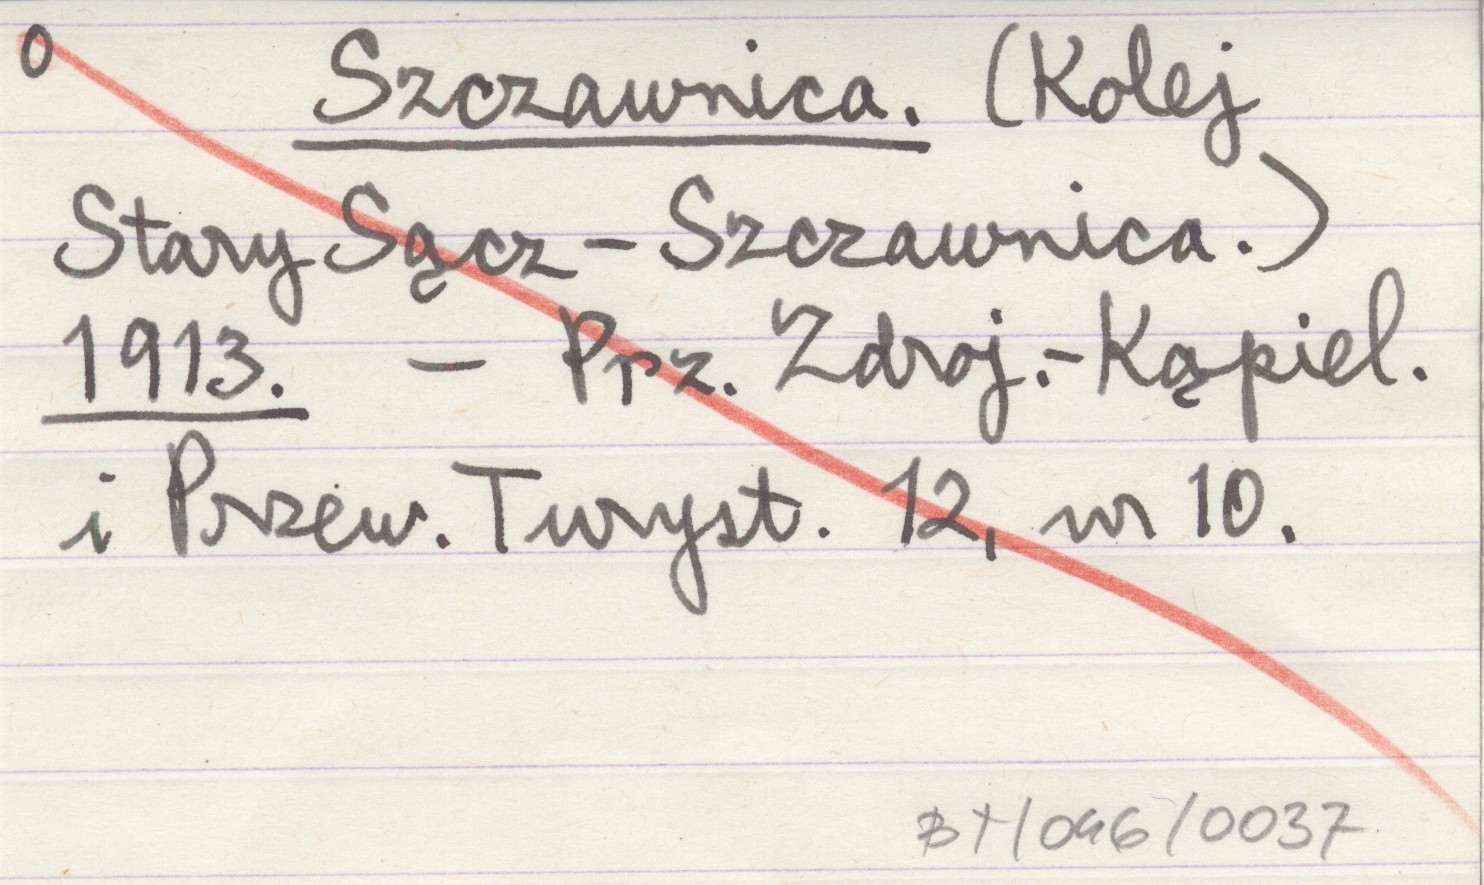 0 Szczawnica. (Kolej
Stary Sącz – Szczawnica.)
1913. – Prz. Zdroj.-Kąpiel.
i Przew. Turyst. 12, nr 10.
BT/046/0037